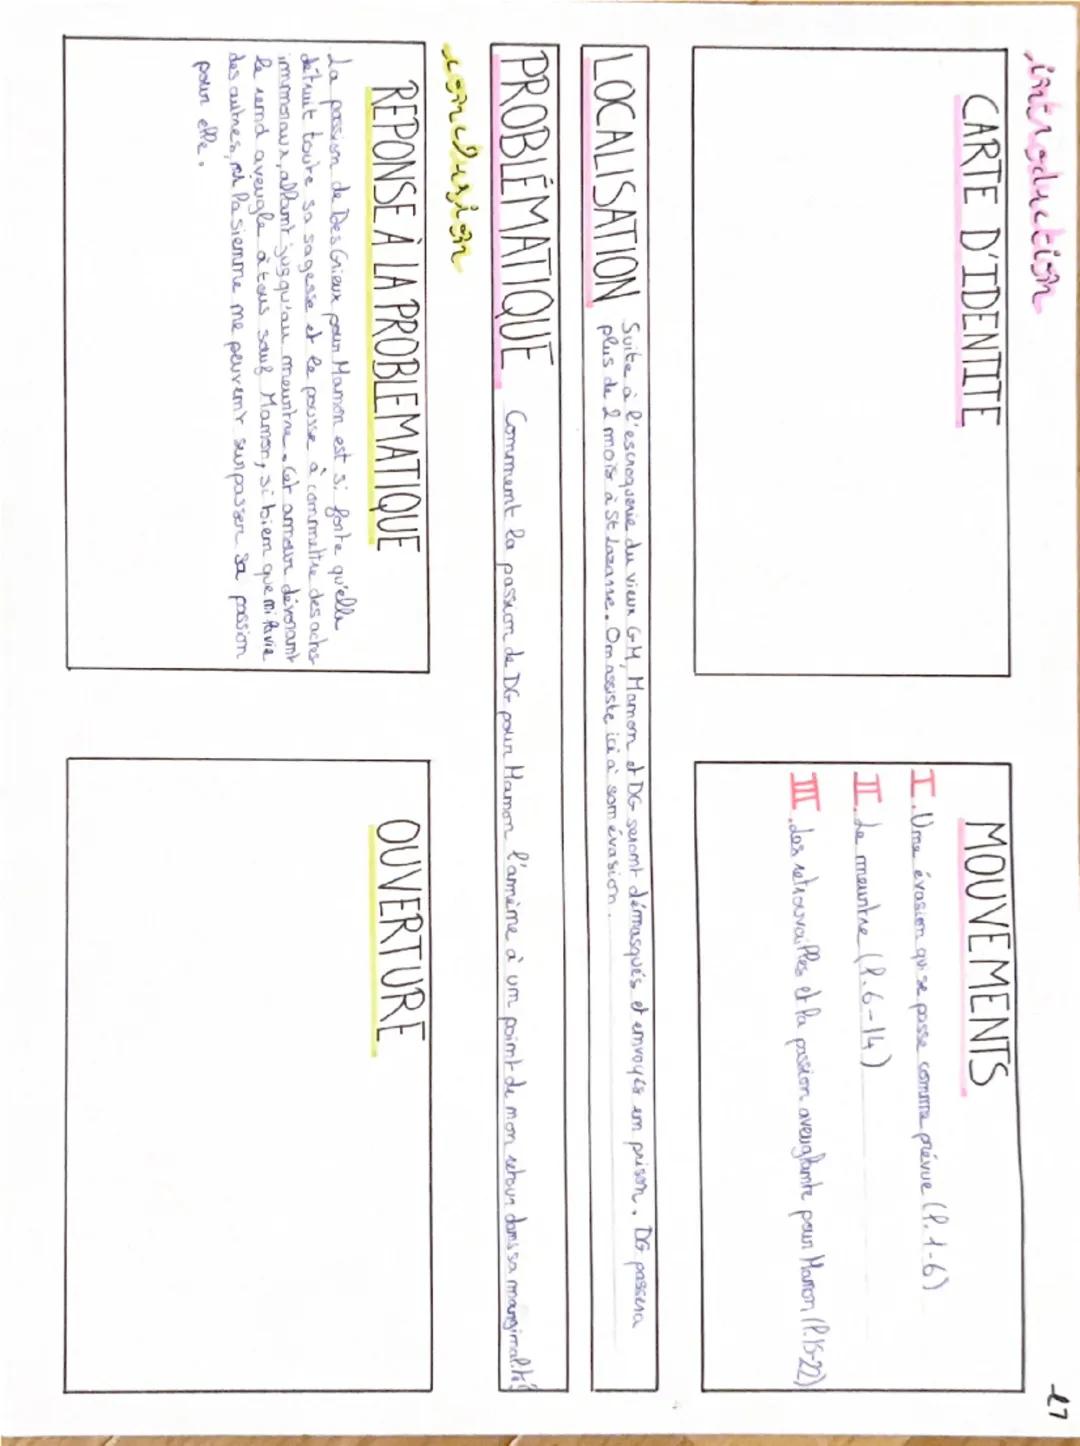 introduction
L7
CARTE D'IDENTITE
MOUVEMENTS
I. Une évasion qui se passe comme prévue (l.1-6)
II. Le meurtre (l.6-14)
III. Les retrouvailles et la passion aveuglante pour Manon (l.15-22)
LOCALISATION
Suite à l'escroquerie du vieux GM, Manon et DG seront démasqués et envoyés en prison. DG passera
plus de 2 mois à St Lazarre. On assiste ici à son évasion.
PROBLÉMATIQUE
Comment la passion de DG pour Manon l'amène à un point de non retour dans sa marginalité?
conclusion
REPONSE À LA PROBLEMATIQUE
La passion de Des Grieux pour Manon est si forte qu'elle
détruit toute sa sagesse et le pousse à commettre des actes
immoraux, allant jusqu'au meurtre. Cet amour dévorant
le rend aveugle à tous sauf Manon, si bien que ni la vie
des autres, ni la sienne ne peuvent surpasser sa passion
pour elle.
OUVERTURE